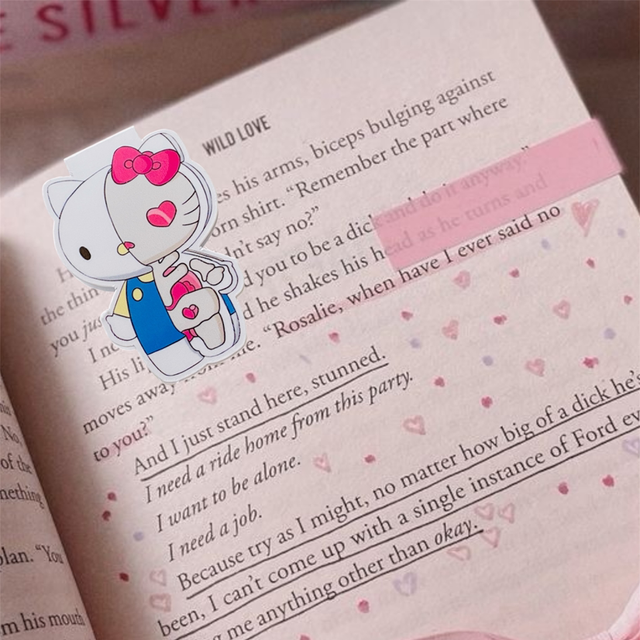 E SILVER
WILD LOVE
es his arms, biceps bulging against
orn shirt. "Remember the part where
n't say no?"
the thin d you to be a dick and do it anyway."
you jus d he shakes his head as he turns and
moves away from me. "Rosalie, when have I ever said no
to you?"
And I just stand here, stunned.
I need a ride home from this party.
I want to be alone.
I need a job.
Because try as I might, no matter how big of a dick he's
been, I can't come up with a single instance of Ford ex
g me anything other than okay.
No,
of the
nething
plan. "You
m his mouth